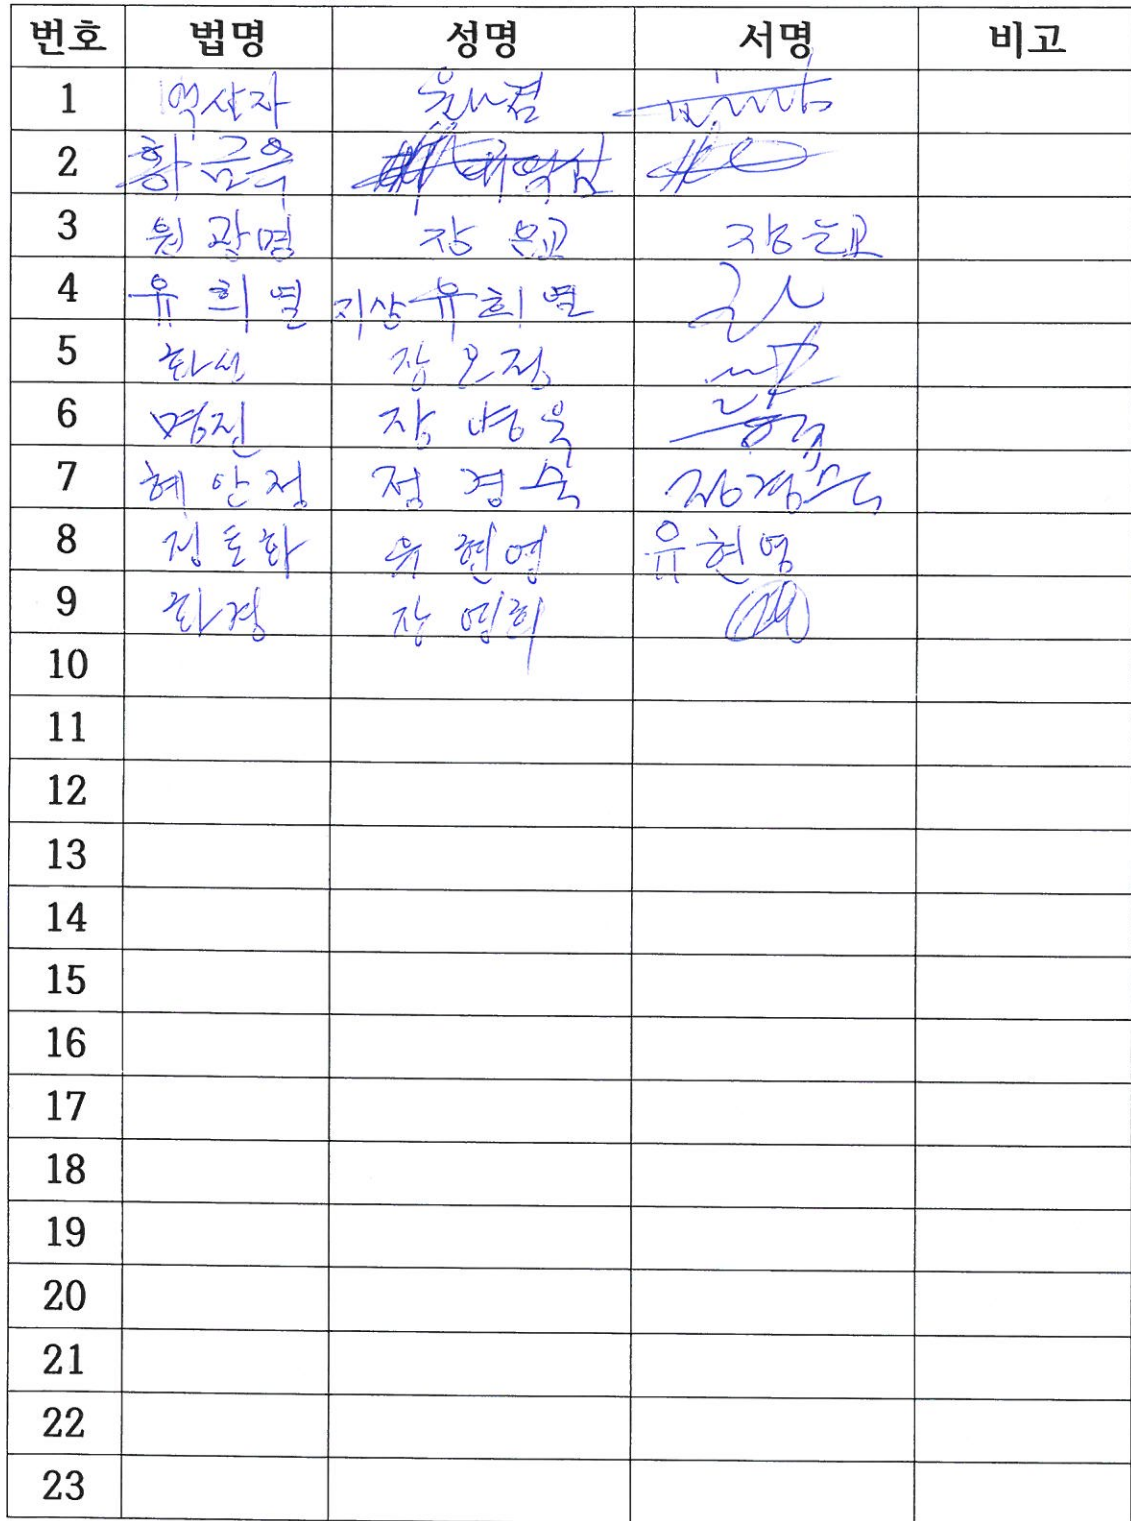 번호 법명 성명 서명 비고
1
2 황금옥
3 원광명 장 장은교
4 유희열 지상 유희열
5 화선 장오정
6 명진 장병옥
7 혜안정 정경숙 정경숙
8 정토화 유현영 유현영
9 화경 장영희
10
11
12
13
14
15
16
17
18
19
20
21
22
23